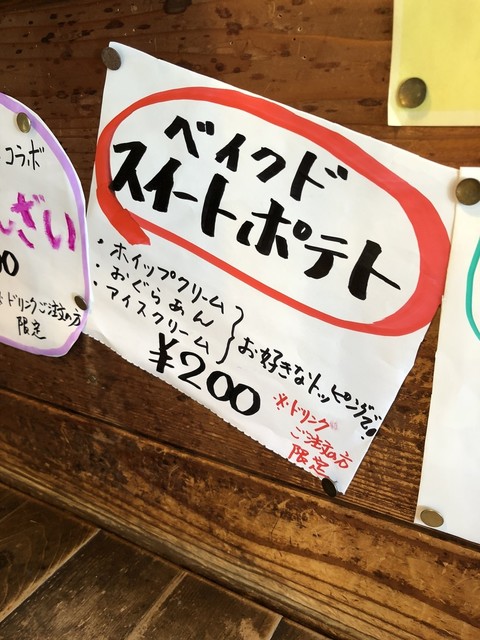 コラボ
ざい
※ドリンクご注文の方
限定
ベイクド
スイートポテト
・ホイップクリーム
・おぐらあん
・アイスクリーム
お好きなトッピングで!
¥200
※ドリンク
ご注文の方
限定